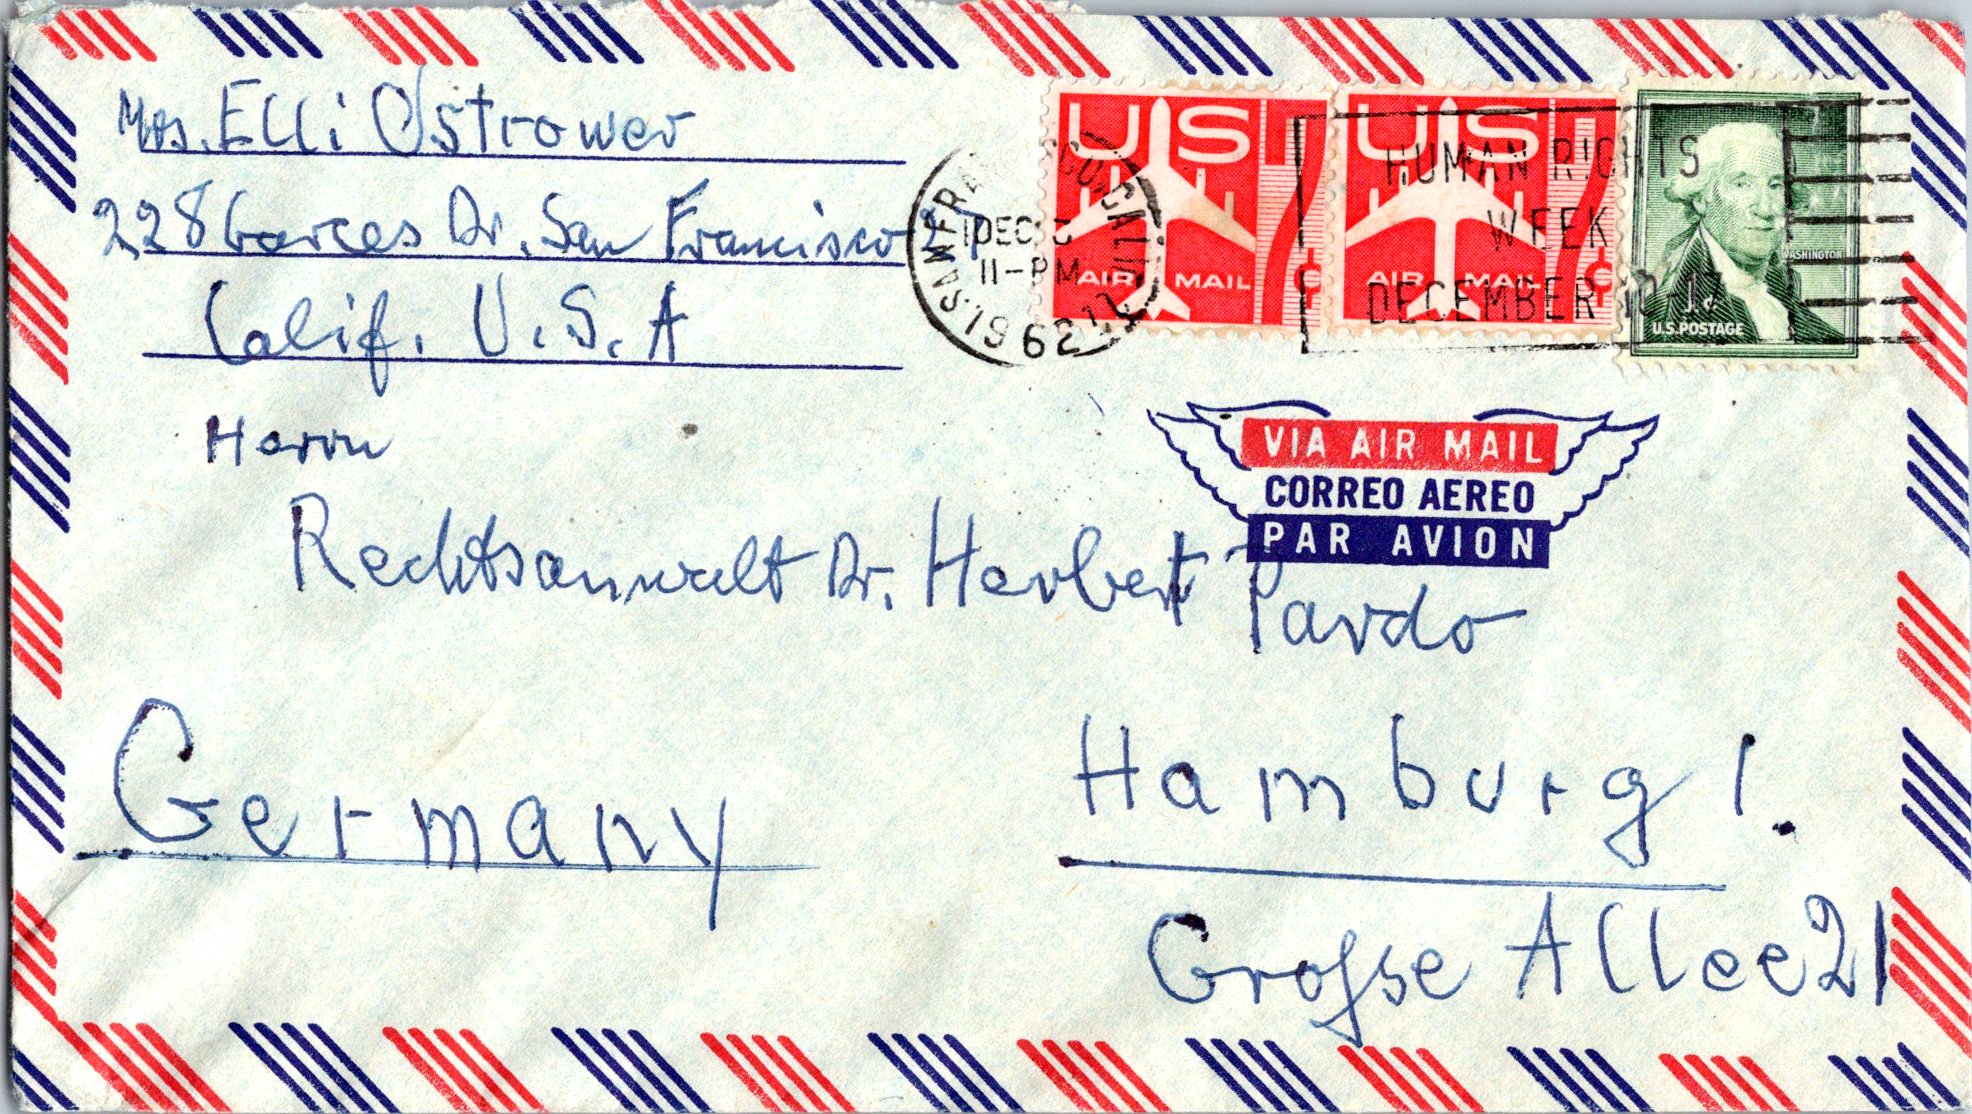 Mrs. Elli Ostrower
228 Garces Dr. San Francisco
Calif. U.S.A
SAN FRANCISCO, CALIF.
DEC
11-PM
1962
US 7¢
AIR MAIL
US 7¢
AIR MAIL
HUMAN RIGHTS
WEEK
DECEMBER 10-17
WASHINGTON
1¢
U.S. POSTAGE
VIA AIR MAIL
CORREO AEREO
PAR AVION
Herrn
Rechtsanwalt Dr. Herbert Pardo
Hamburg 1.
Germany
Grosse Allee 21